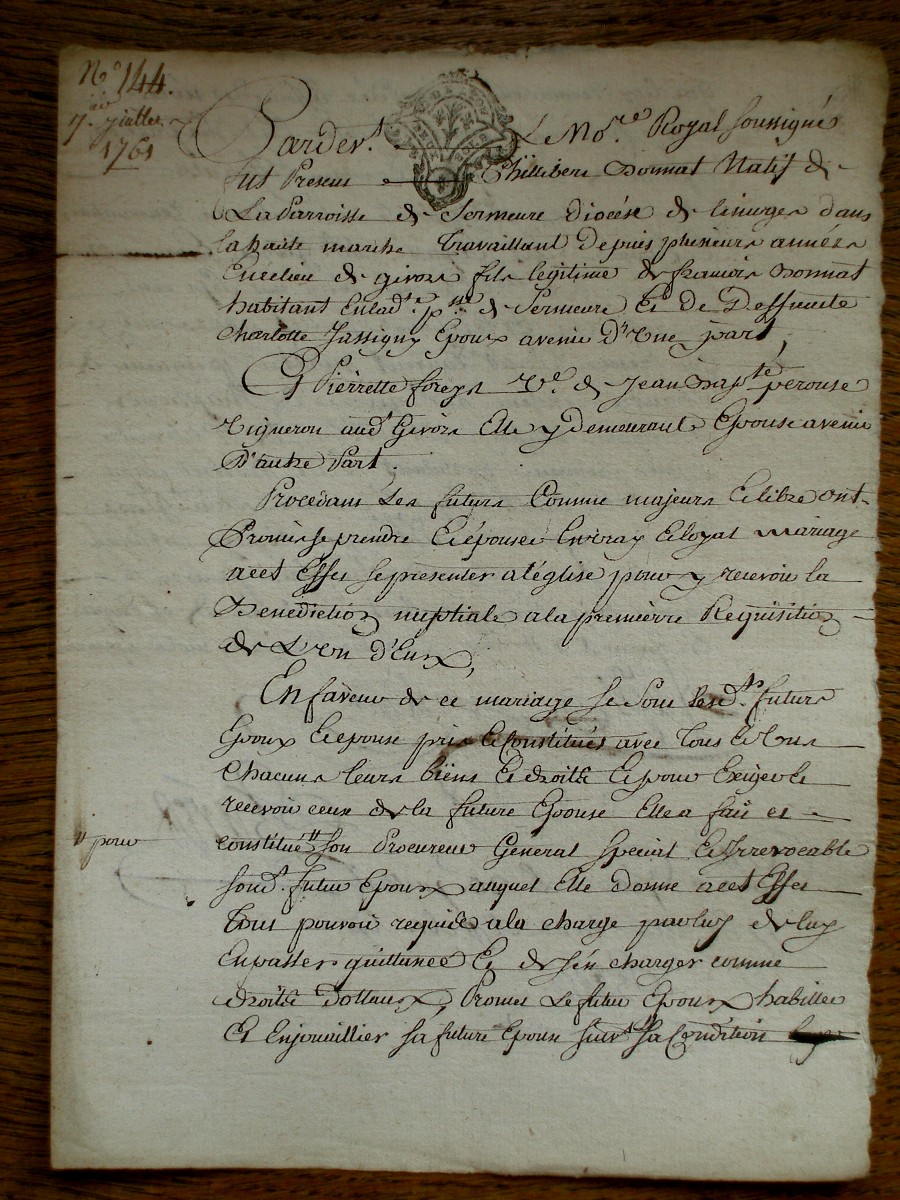 N.º 144.
du
7. juillet
1761
Pardev.t Le No.re Royal soussigné
fut Present Philibert Donnat Natif de
La Parroisse de Sermeure diocése de limoges dans
la haute marche travaillant depuis plusieurs années
En ce lieu de givors fils legitime de francois Donnat
habitant En lad.te p.sse de Sermeure Et de Deffuncte
Charlotte Jassigny Epoux avenir D'Une part,
Et Pierrette foreys V.e de Jean Bap.te perouse
Vigneron aud.t Givors Elle y demeurant Epouse avenir
D'autre Part.
Procedans Les futurs Comme majeurs Et libre ont
Promis se prendre Et épouser En vray Et loyal mariage
a cet Effet se presenter a l'église pour y recevoir la
Benediction nuptiale a la premierre Requisition
de L'Un d'Eux,
En faveur de ce mariage se sont lesd.ts futurs
Epoux Et epouse pris Et Constitués avec tous Et Uns
Chacuns leurs biens Et droits Et pour Exiger Et
recevoir ceux de la future Epouse Elle a fait et
constitué # son Procureur General Special Et Irrevocable
# pour
sond.t futur Epoux auquel Elle donne a cet Effet
tous pouvoir requis a la charge par luy de luy
En passer quittance Et de s'en charger comme
droits dottaux, Promet Le futur Epoux habiller
Et Enjouaillier sa future Epouse suiv.t sa Condition